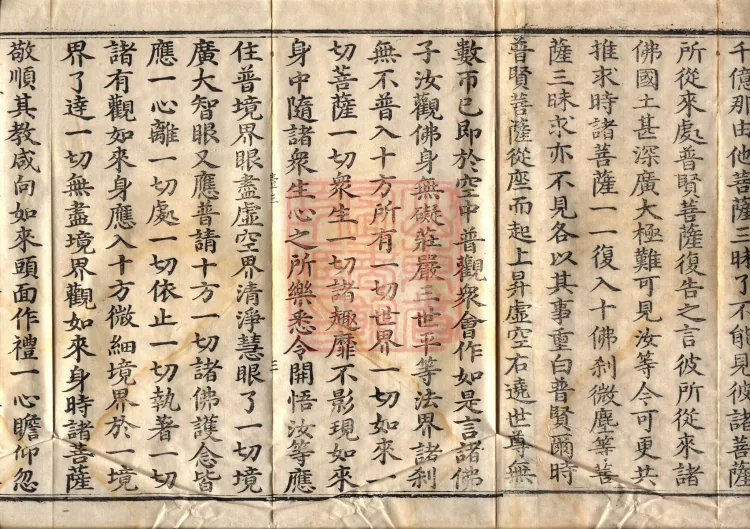 千億那由他菩薩三昧了不能見彼諸菩薩
所從來處普賢菩薩復告之言彼所從來諸
佛國土甚深廣大極難可見汝等今可更共
推求時諸菩薩一一復入十佛刹微塵等菩
薩三昧求亦不見各以其事重白普賢爾時
普賢菩薩從座而起上昇虛空右遶世尊無
數帀已即於空中普觀衆會作如是言諸佛
子汝觀佛身無礙莊嚴三世平等法界諸刹
無不普入十方所有一切世界一切如來一
切菩薩一切衆生一切諸趣靡不影現如來
身中隨諸衆生心之所樂悉令開悟汝等應
住普境界眼盡虛空界清淨慧眼了一切境
廣大智眼又應普請十方一切諸佛護念皆
應一心離一切處一切依止一切執著一切
諸有觀如來身應入十方微細境界於一境
界了達一切無盡境界觀如來身時諸菩薩
敬順其教咸向如來頭面作禮一心瞻仰忽